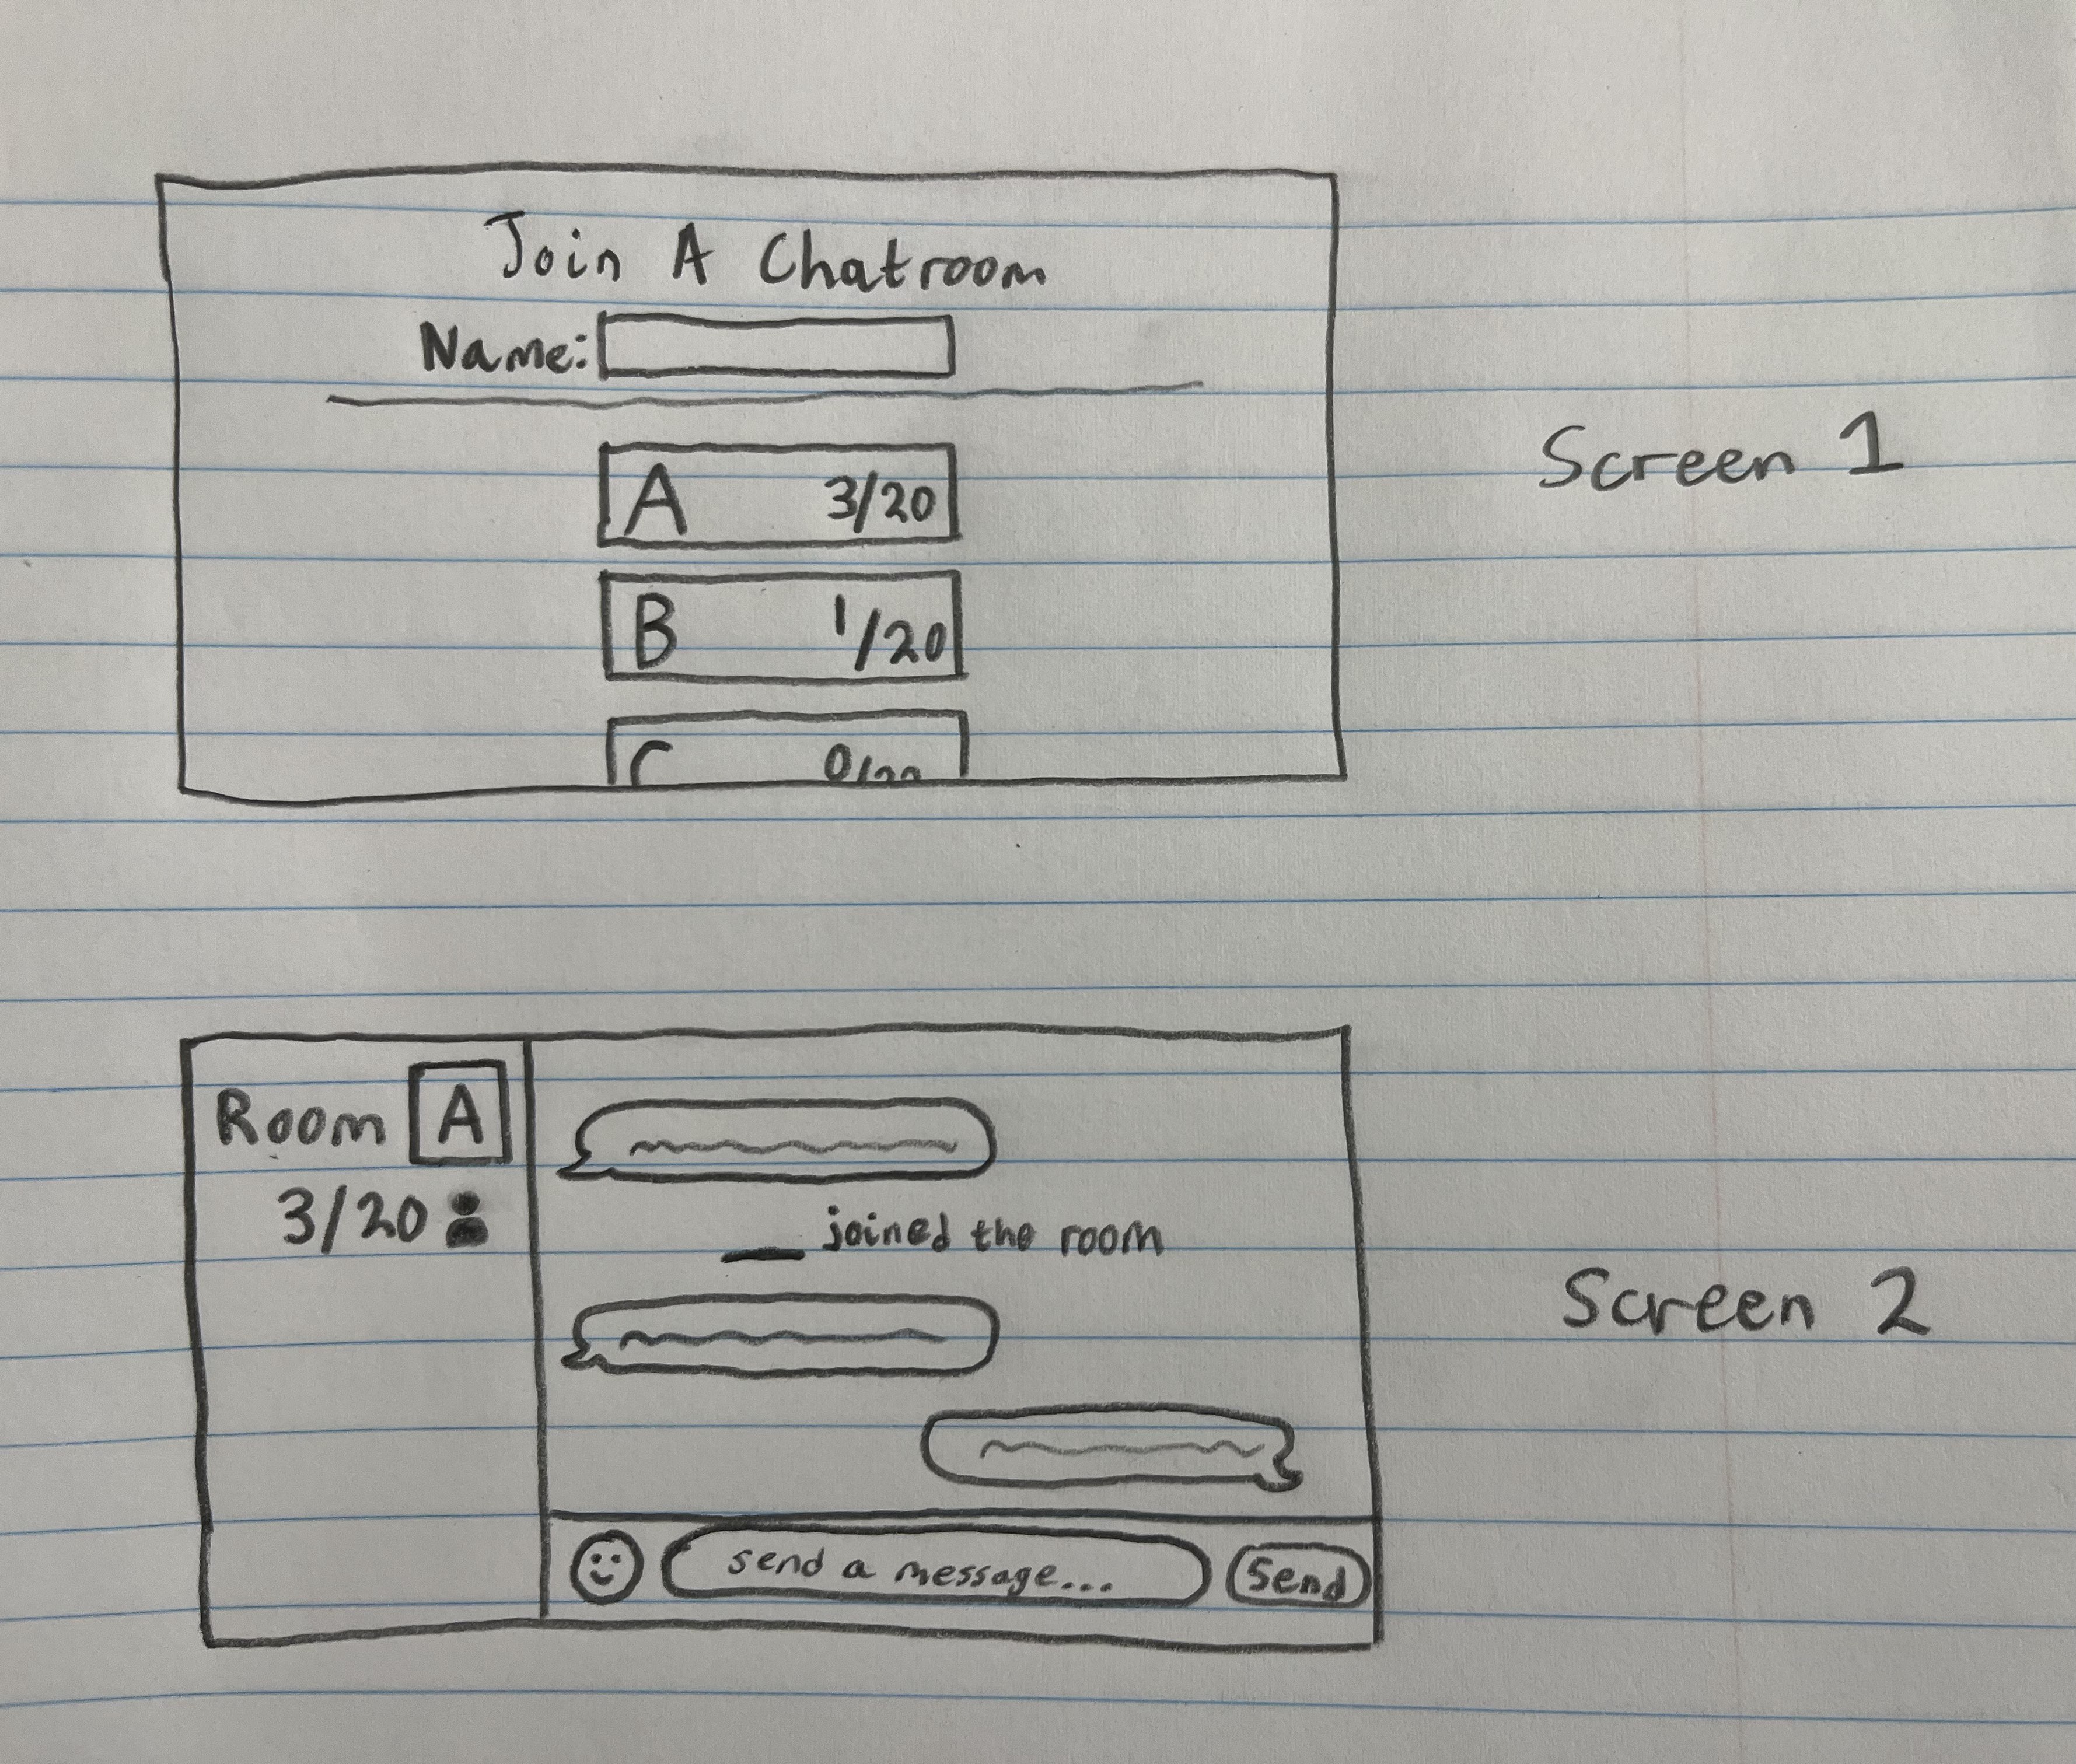 Join A Chatroom
Name:
A 3/20
B 1/20
Screen 1
Room A
3/20
joined the room
Screen 2
send a message...
Send